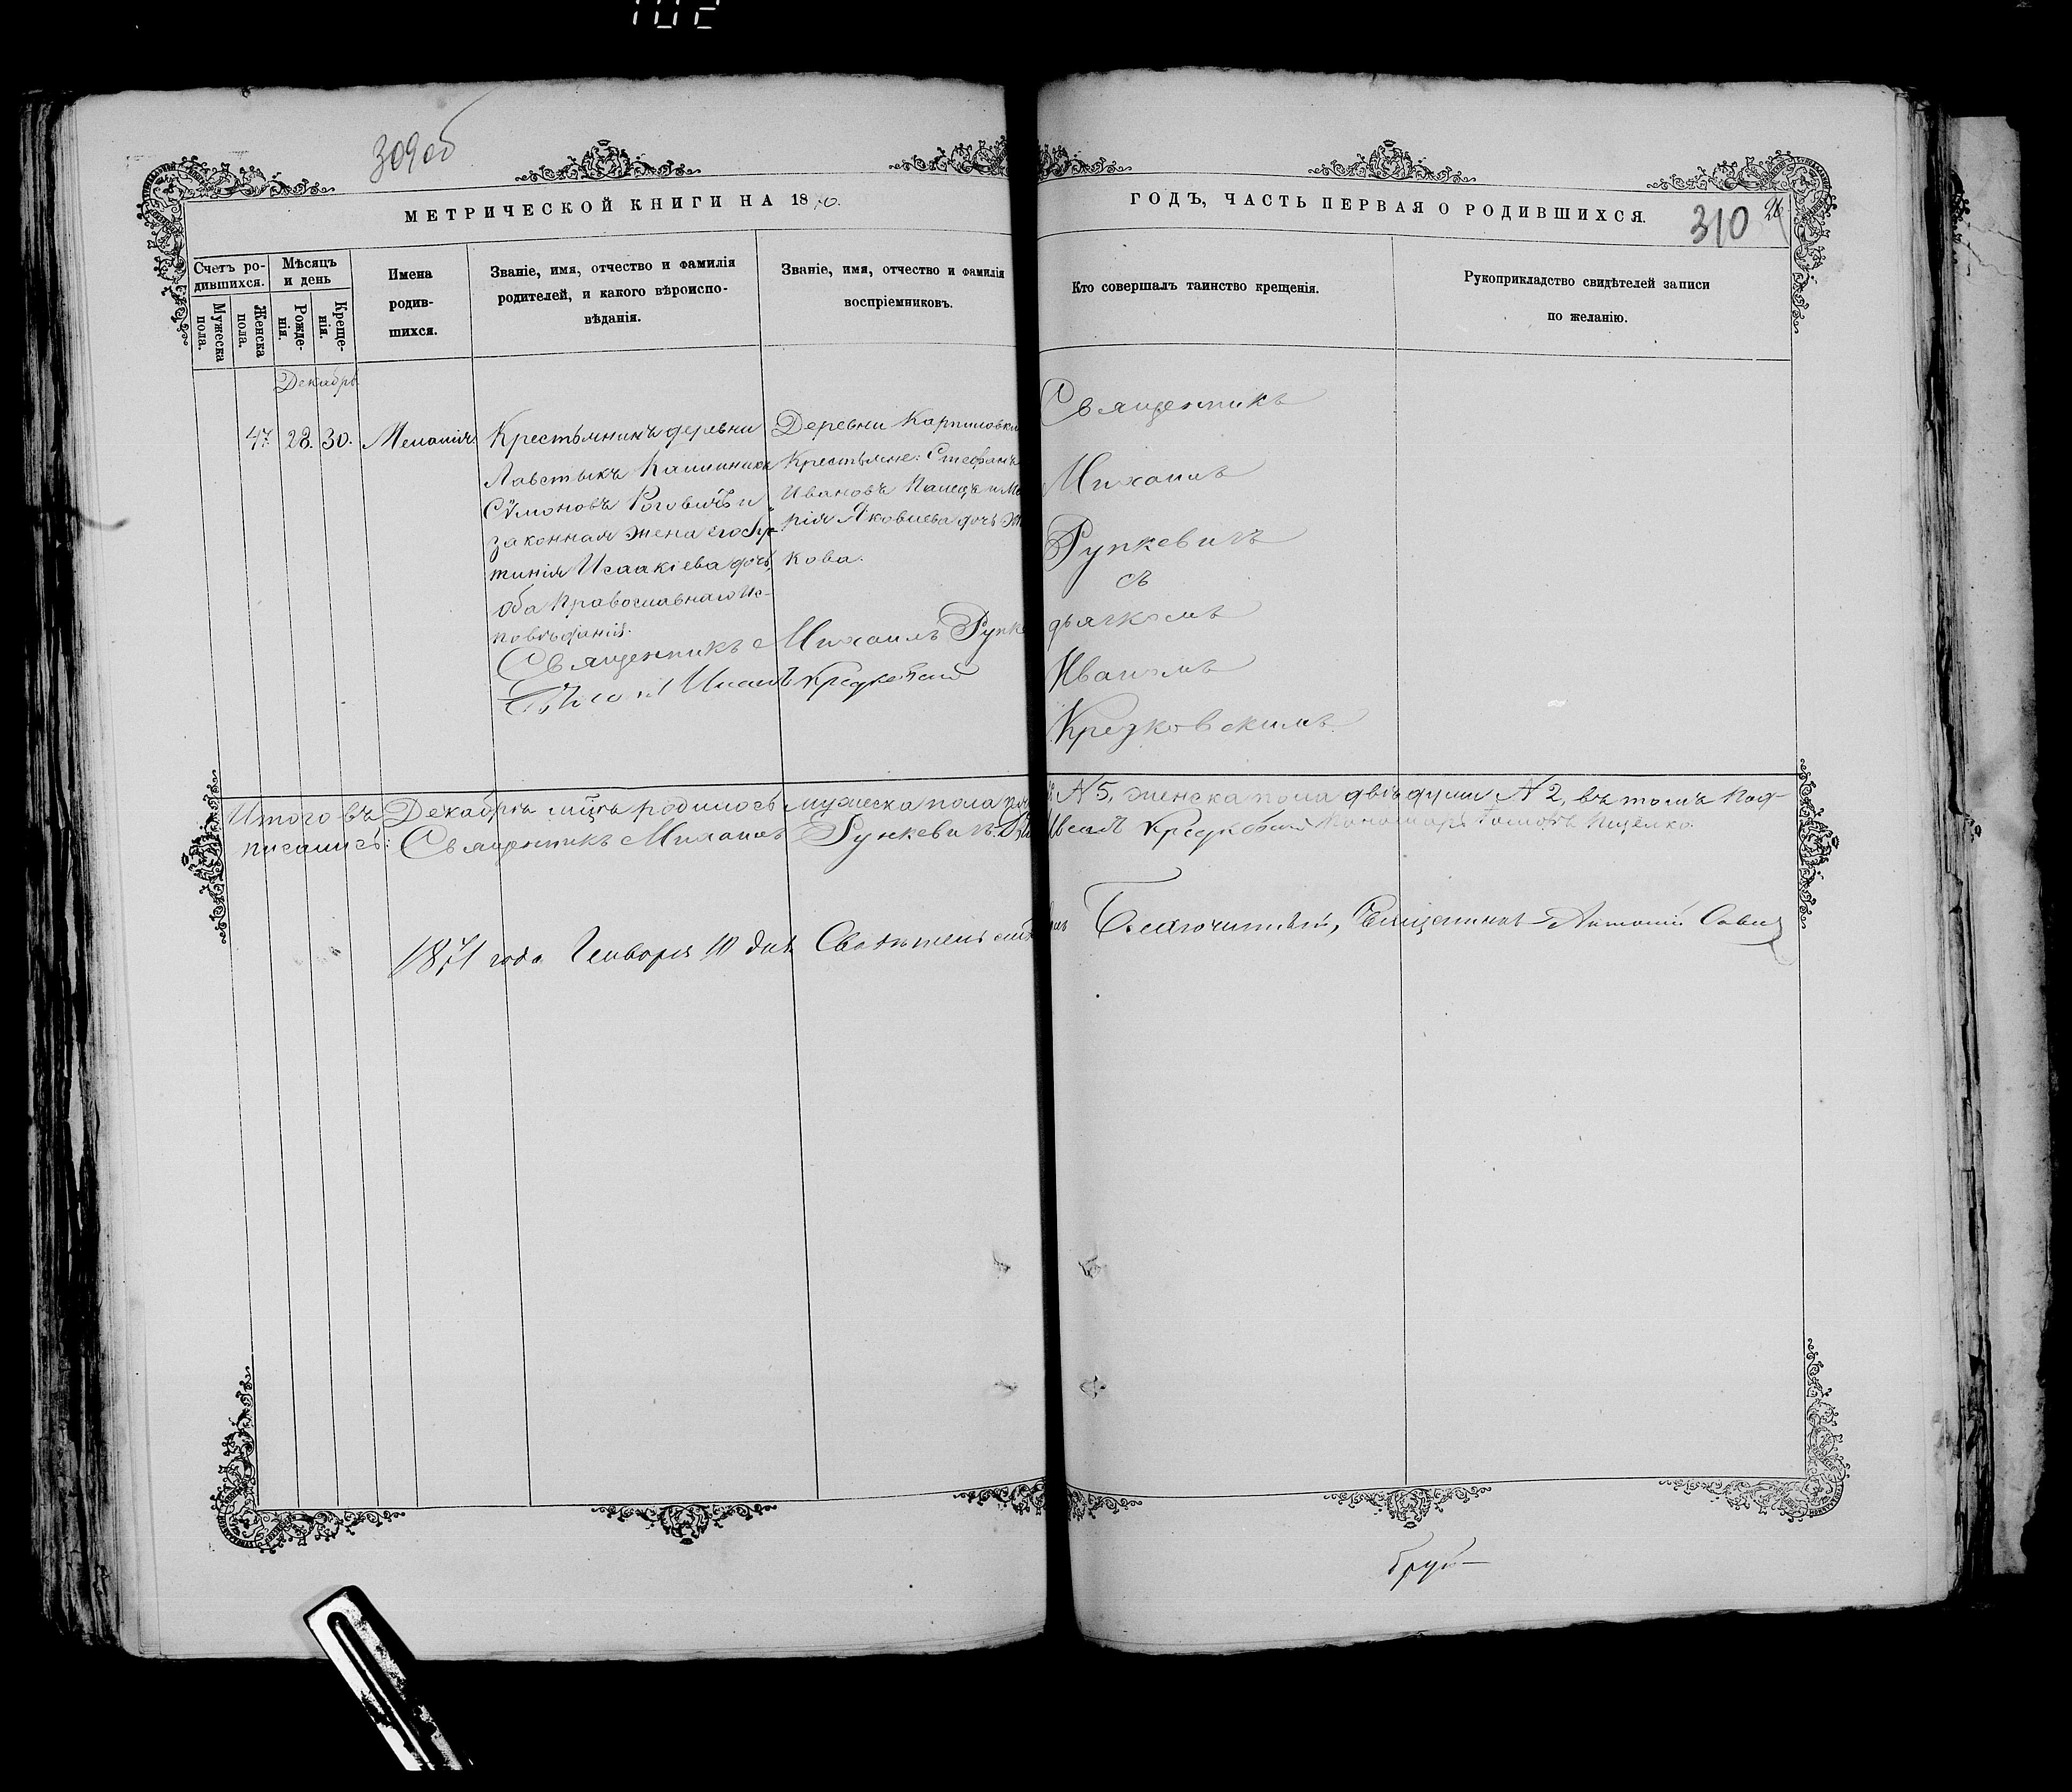 102
309об
МЕТРИЧЕСКОЙ КНИГИ НА 1870.
ГОДЪ, ЧАСТЬ ПЕРВАЯ О РОДИВШИХСЯ.
310
26
Счетъ ро-
дившихся.
Мужеска
пола.
Женска
пола.
Мѣсяцъ
и день
Рожде-
нія.
Креще-
нія.
Имена
родив-
шихся.
Званіе, имя, отчество и фамилія
родителей, и какого вѣроиспо-
вѣданія.
Званіе, имя, отчество и фамилія
воспріемниковъ.
Кто совершалъ таинство крещенія.
Рукоприкладство свидѣтелей записи
по желанію.
Декабрь
47. 28. 30. Меланія.
Крестьянинъ деревни
Лавстыкъ Каллиникъ
Сѵмоновъ Роговичъ и
законная жена его
тинія Исаакіева дочь,
оба Православнаго Ис-
повѣданія.
Деревни Карпиловки
Крестьяне: Стефанъ
Ивановъ и Ма
рія Яковлева дочь
кова.
Священникъ Михаилъ Рунке
Священникъ
Михаилъ
Рункевичъ
съ
дьячкомъ
Иваномъ
Кречковскимъ
Итого въ Декабрѣ мцѣ родилось мужеска пола N 5, женска пола двѣ души N 2, въ томъ Под-
писались: Священникъ Михаилъ Рункевичъ.
1871 года Генваря 10 дня Благочинный, Священникъ Антоній